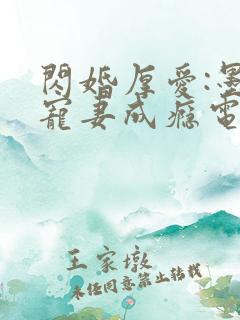 閃婚厚愛:墨
寵妻成癮電
王家墩
未经同意禁止转载